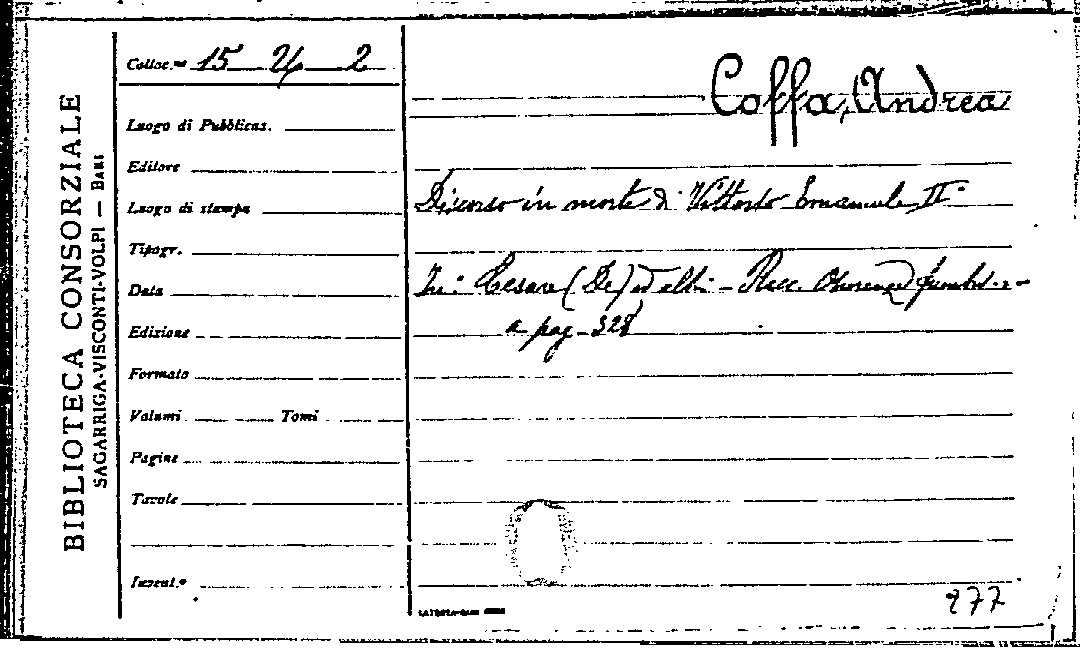 BIBLIOTECA CONSORZIALE
SAGARRIGA-VISCONTI-VOLPI — BARI
Colloc.ne 15 U 2
Luogo di Pubblicaz.
Editore
Luogo di stampa
Tipogr.
Data
Edizione
Formato
Volumi Tomi
Pagine
Tavole
Invent.º
Coffa, Andrea
Discorso in morte di Vittorio Emanuele IIº
In: Cesare (De) ed altri - Racc. funebri -
a pag. 328
277